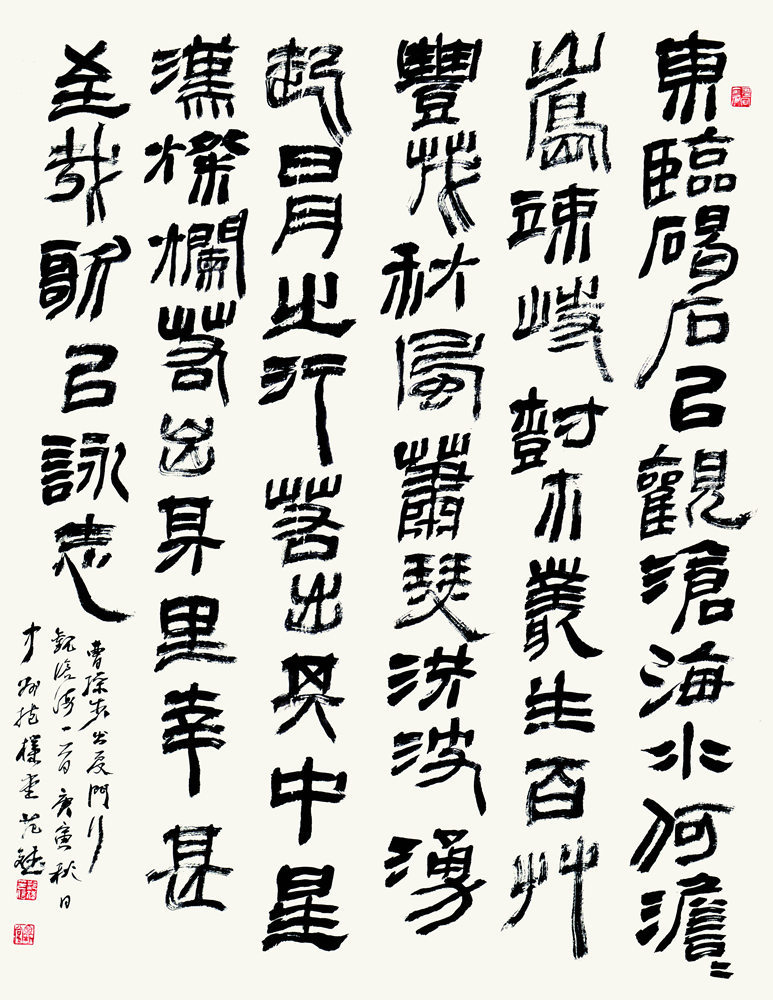 東臨碣石㠯觀滄海水何澹〻
山島竦峙樹木叢生百艸
豐茂秋風蕭瑟洪波湧
起日月之行若出其中星
漢燦爛若出其里幸甚
至哉歌㠯詠志
曹操步出夏門行
觀滄海一首庚寅秋日
堂范